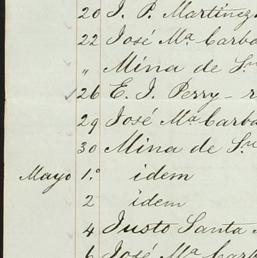 20 J. P. Martinez
22 José Mª Carbo
" Mina de Sn
✓26 E. J. Perry - r
29 José Mª Carba
30 Mina de Sn
Mayo 1.º idem
2 idem
4 Justo Santa
6 José Mª Carb